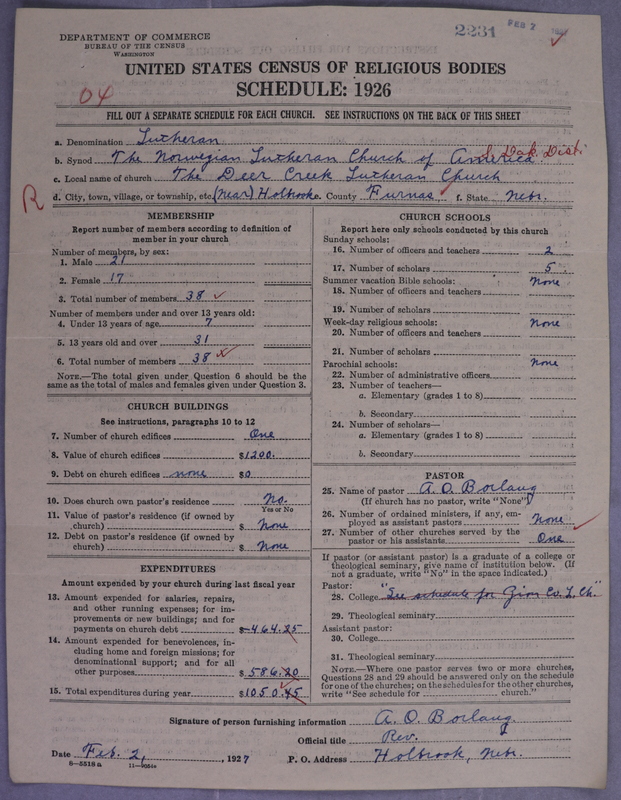 2231 FEB 7
DEPARTMENT OF COMMERCE
BUREAU OF THE CENSUS
WASHINGTON
UNITED STATES CENSUS OF RELIGIOUS BODIES
SCHEDULE: 1926
04
FILL OUT A SEPARATE SCHEDULE FOR EACH CHURCH. SEE INSTRUCTIONS ON THE BACK OF THIS SHEET
a. Denomination Lutheran
b. Synod The Norwegian Lutheran Church of America S. Dak. Dist.
c. Local name of church The Deer Creek Lutheran Church
d. City, town, village, or township, etc. (Near) Holbrook e. County Furnas f. State Nebr.
R
MEMBERSHIP
Report number of members according to definition of
member in your church
Number of members, by sex:
1. Male 21
2. Female 17
3. Total number of members 38
Number of members under and over 13 years old:
4. Under 13 years of age 7
5. 13 years old and over 31
6. Total number of members 38
NOTE.—The total given under Question 6 should be
same as the total of males and females given under Question 3.
CHURCH BUILDINGS
See instructions, paragraphs 10 to 12
7. Number of church edifices One
8. Value of church edifices $1200.
9. Debt on church edifices none $0
10. Does church own pastor's residence No.
Yes or No
11. Value of pastor's residence (if owned by
church) $ None
12. Debt on pastor's residence (if owned by
church) $ None
EXPENDITURES
Amount expended by your church during last fiscal year
13. Amount expended for salaries, repairs,
and other running expenses; for im-
provements or new buildings; and for
payments on church debt $464.25
14. Amount expended for benevolences, in-
cluding home and foreign missions; for
denominational support; and for all
other purposes $586.20
15. Total expenditures during year $1050.45
CHURCH SCHOOLS
Report here only schools conducted by this church
Sunday schools:
16. Number of officers and teachers 2
17. Number of scholars 5
Summer vacation Bible schools: None
18. Number of officers and teachers
19. Number of scholars
Week-day religious schools: None
20. Number of officers and teachers
21. Number of scholars
Parochial schools: None
22. Number of administrative officers
23. Number of teachers—
a. Elementary (grades 1 to 8)
b. Secondary
24. Number of scholars—
a. Elementary (grades 1 to 8)
b. Secondary
PASTOR
25. Name of pastor A. O. Borlaug
(If church has no pastor, write "None")
26. Number of ordained ministers, if any, em-
ployed as assistant pastors None
27. Number of other churches served by the
pastor or his assistants One
If pastor (or assistant pastor) is a graduate of a college or
theological seminary, give name of institution below. (If
not a graduate, write "No" in the space indicated.)
Pastor:
28. College "See schedule for Zion Co. L. Ch."
29. Theological seminary
Assistant pastor:
30. College
31. Theological seminary
NOTE.—Where one pastor serves two or more churches,
Questions 28 and 29 should be answered only on the schedule
for one of the churches; on the schedules for the other churches,
write "See schedule for church."
Signature of person furnishing information A. O. Borlaug
Official title Rev.
Date Feb. 2, , 1927 P. O. Address Holbrook, Nebr.
8—5518 a